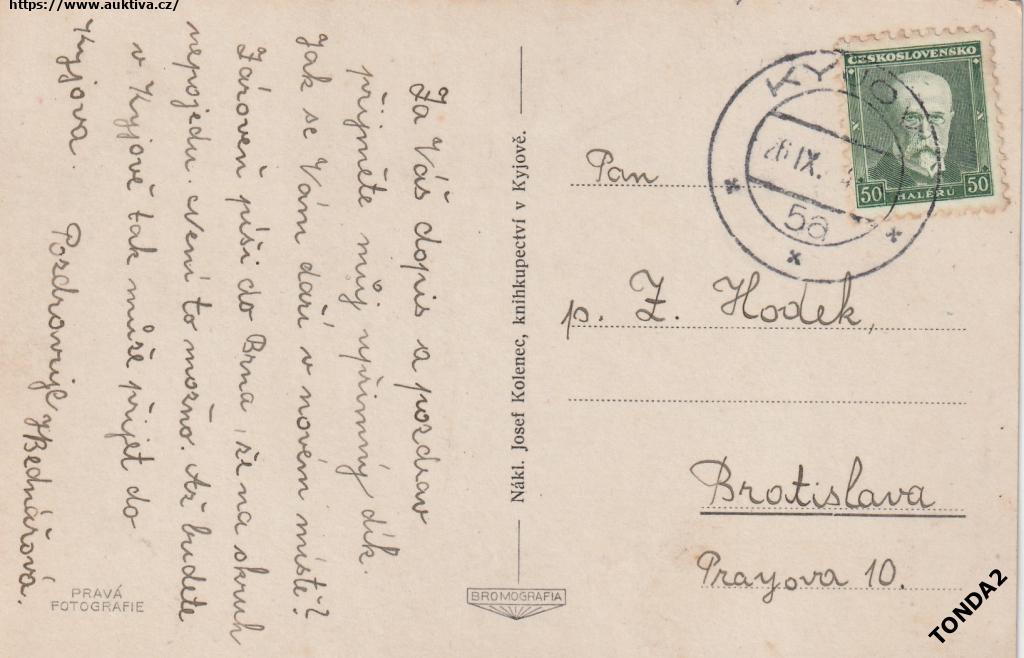 https://www.auktiva.cz/
Za Váš dopis a pozdrav
přijměte můj upřímný dík.
Jak se Vám daří v novém místě?
Zároveň píši do Brna, že na okruh
nepojedu. Není to možno. Až budete
v Kyjově tak může přijet do
Kyjova.
Pozdravuje Bednářová.
PRAVÁ
FOTOGRAFIE
Nákl. Josef Kolenec, knihkupectví v Kyjově.
BROMOGRAFIA
ČESKOSLOVENSKO
50 HALÉŘŮ 50
KYJOV
IX.
5a
Pan
p. Z. Hodek,
Bratislava
Prayova 10.
TONDA2